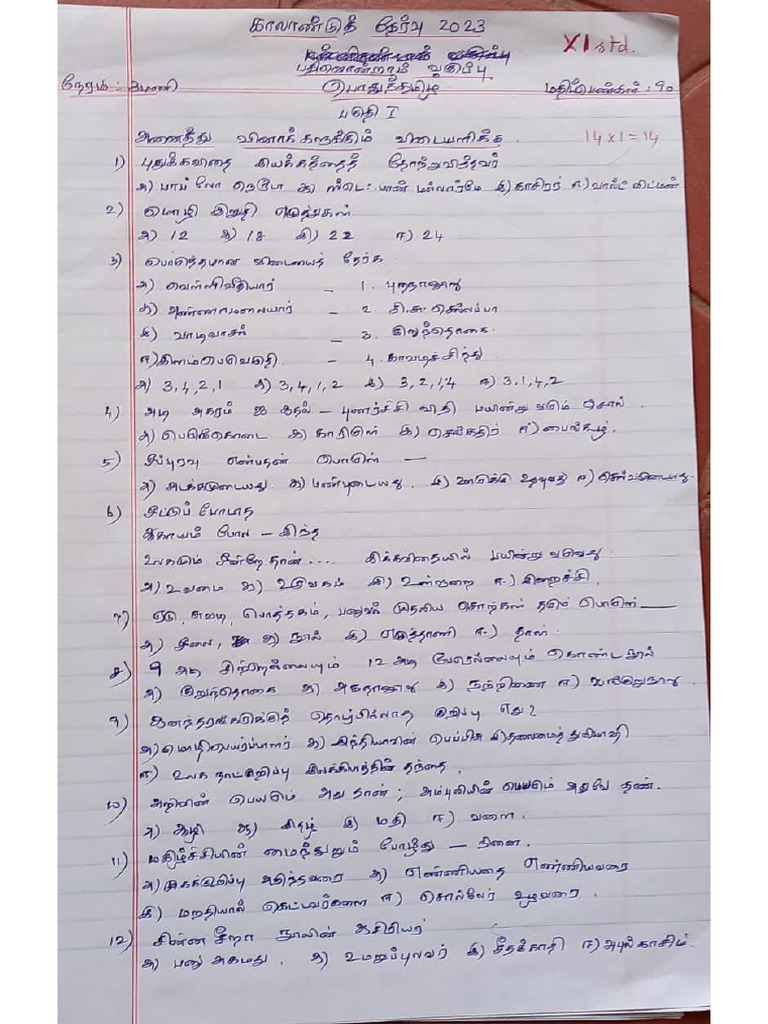 காலாண்டுத் தேர்வு 2023
XI std.
பதினொன்றாம் வகுப்பு
நேரம்: 3மணி பொதுத்தமிழ் மதிப்பெண்கள்: 90
பகுதி I
அனைத்து வினாக்களுக்கும் விடையளிக்க. 14x1=14
1) புதுக்கவிதை இயக்கத்தைத் தோற்றுவித்தவர்
அ) பாப்லோ நெரூடா ஆ) ஸ்டெஃபான் மல்லார்மே இ) காசிரர் ஈ) வால்ட் விட்மன்
2) மொழி இறுதி எழுத்துகள்
அ) 12 ஆ) 18 இ) 22 ஈ) 24
3) பொருத்தமான விடையைத் தேர்க
அ) வெள்ளிவீதியார் – 1. புறநானூறு
ஆ) அண்ணாமலையார் – 2. சி.சு. செல்லப்பா
இ) வாடிவாசல் – 3. குறுந்தொகை
ஈ) இளம்பெருவழுதி – 4. காவடிச் சிந்து
அ) 3,4,2,1 ஆ) 3,4,1,2 இ) 3,2,1,4 ஈ) 3,1,4,2
4) அடி அகரம் ஐ ஆதல் – புணர்ச்சி விதி பயின்று வரும் சொல்
அ) பெருங்கொடை ஆ) காரிருள் இ) செங்கதிர் ஈ) பைங்கூழ்.
5) ஒப்புரவு என்பதன் பொருள் —
அ) அடக்கமுடையது ஆ) பண்புடையது இ) ஊருக்கு உதவுவது ஈ) செல்வமுடையது.
6) கட்டுப் போடாத
ஆகாயம் போல – இந்த
உலகமும் ஒன்றே தான் .... இக்கவிதையில் பயின்று வருவது
அ) உவமை ஆ) உருவகம் இ) உள்ளுறை ஈ) இறைச்சி.
7) ஏடு, சுவடி, பொத்தகம், பனுவல் முதலிய சொற்கள் தரும் பொருள் —
அ) ஓலை, ஆ) நூல் இ) எழுத்தாணி ஈ) தாள்.
8) 9 அடி சிற்றெல்லையும் 12 அடி பேரெல்லையும் கொண்ட நூல்
அ) குறுந்தொகை ஆ) அகநானூறு இ) நற்றிணை ஈ) ஐங்குறுநூறு
9) ஆனந்தரங்கருக்குத் தொடர்பில்லாத குறிப்பு எது?
அ) மொழிபெயர்ப்பாளர் ஆ) இந்தியாவின் பெப்பிசு இ) தலைமைத் துவிபாஷி
ஈ) உலக நாட்குறிப்பு இலக்கியத்தின் தந்தை.
10) அறிவின் பெயரும் அது தான்; அம்புலியின் பெயரும் அதுவே தான்.
அ) ஆழி ஆ) இதழ் இ) மதி ஈ) வளை.
11) மகிழ்ச்சியின் மைந்துறும் போழ்து – நினை.
அ) முகக்குறிப்பு அறிந்தவரை ஆ) எண்ணியதை எண்ணியவரை
இ) மறதியால் கெட்டவர்களை ஈ) சொல்லேர் உழவரை.
12) சின்ன சீறா நூலின் ஆசிரியர்
அ) பனு அகமது. ஆ) உமறுப்புலவர் இ) சீதக்காதி ஈ) அபுல்காசிம்.